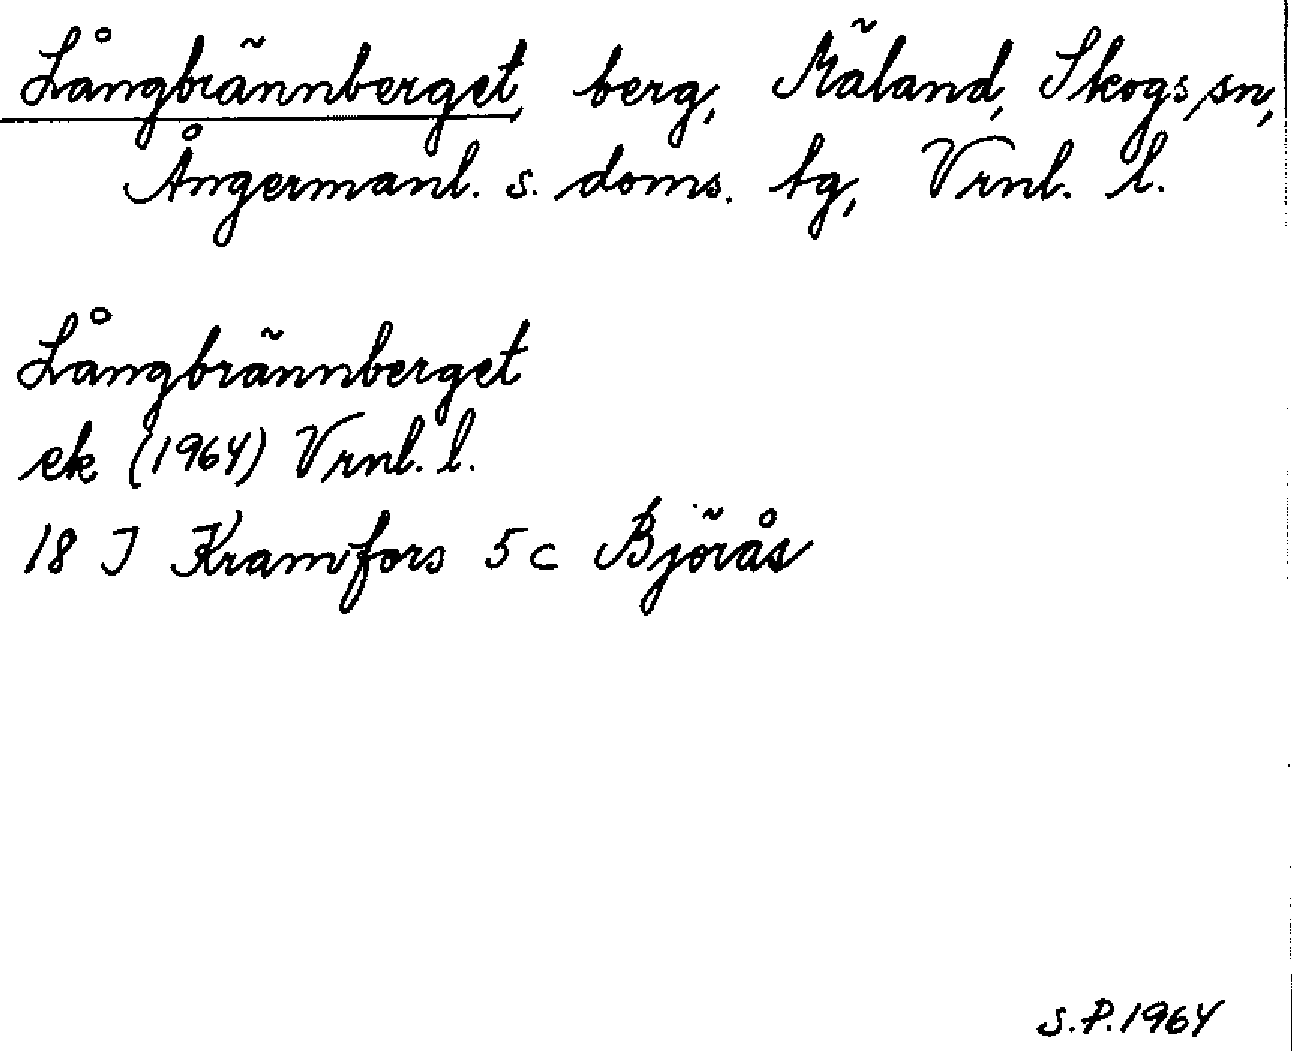 Långbrännberget, berg, Mäland, Skogs sn,
Ångermanl. s. doms. tg, Vrnl. l.
Långbrännberget
ek (1964) Vrnl. l.
18 I Kramfors 5 c Björås
S.P.1964